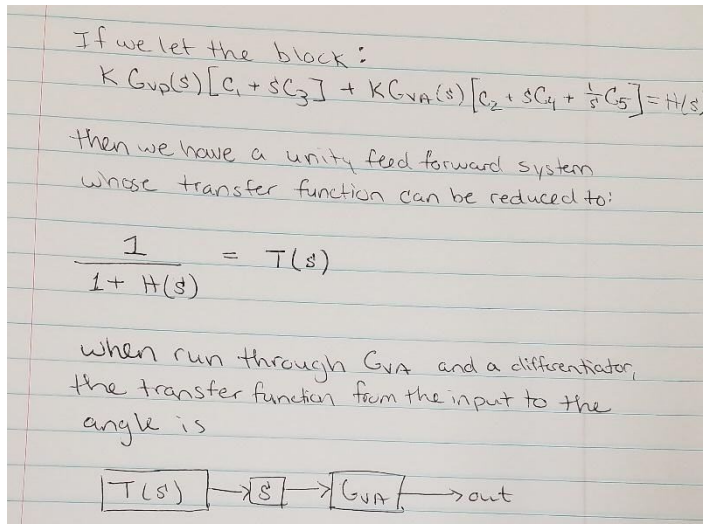 If we let the block:
K Gvp(s) [C₁ + sC₃] + K GVA(s) [C₂ + sC₄ + 1/s C₅] = H(s)
then we have a unity feed forward system
whose transfer function can be reduced to:
1 / 1 + H(s) = T(s)
when run through GVA and a differentiator,
the transfer function from the input to the
angle is
T(s) → s → GVA → out